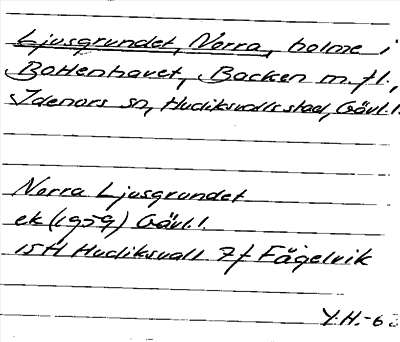 Ljusgrundet, Norra, holme i
Bottenhavet, Backen m. fl.,
Idenors sn, Hudiksvalls stad, Gävl.l.
Norra Ljusgrundet
ek (1959) Gävl.l.
15H Hudiksvall 7f Fågelvik
Y.H.-63